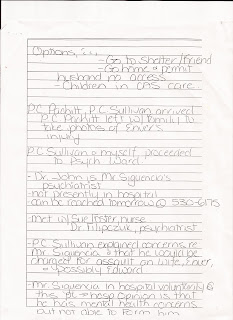 Options...
- Go to shelter/friend
- Go home & permit
husband no access
- Children in CAS care
P.C. Pachitt, P.C. Sullivan arrived
P.C. Pachitt left w/ family to
take photos of Enver's
injury
P.C. Sullivan & myself proceeded
to Psych Ward.
- Dr. John is Mr. Siguencia's
psychiatrist
- not present in hospital
- can be reached tomorrow @
- met w/ Sue, nurse
Dr. Filipczuk, psychiatrist
- P.C. Sullivan explained concerns re
Mr. Siguencia & that he would be
charged for assault on wife, Enver,
& possibly Edward
- Mr. Siguencia in hospital voluntarily @
this pt. → hosp opinion is that
he has mental health concerns
but not able to form him